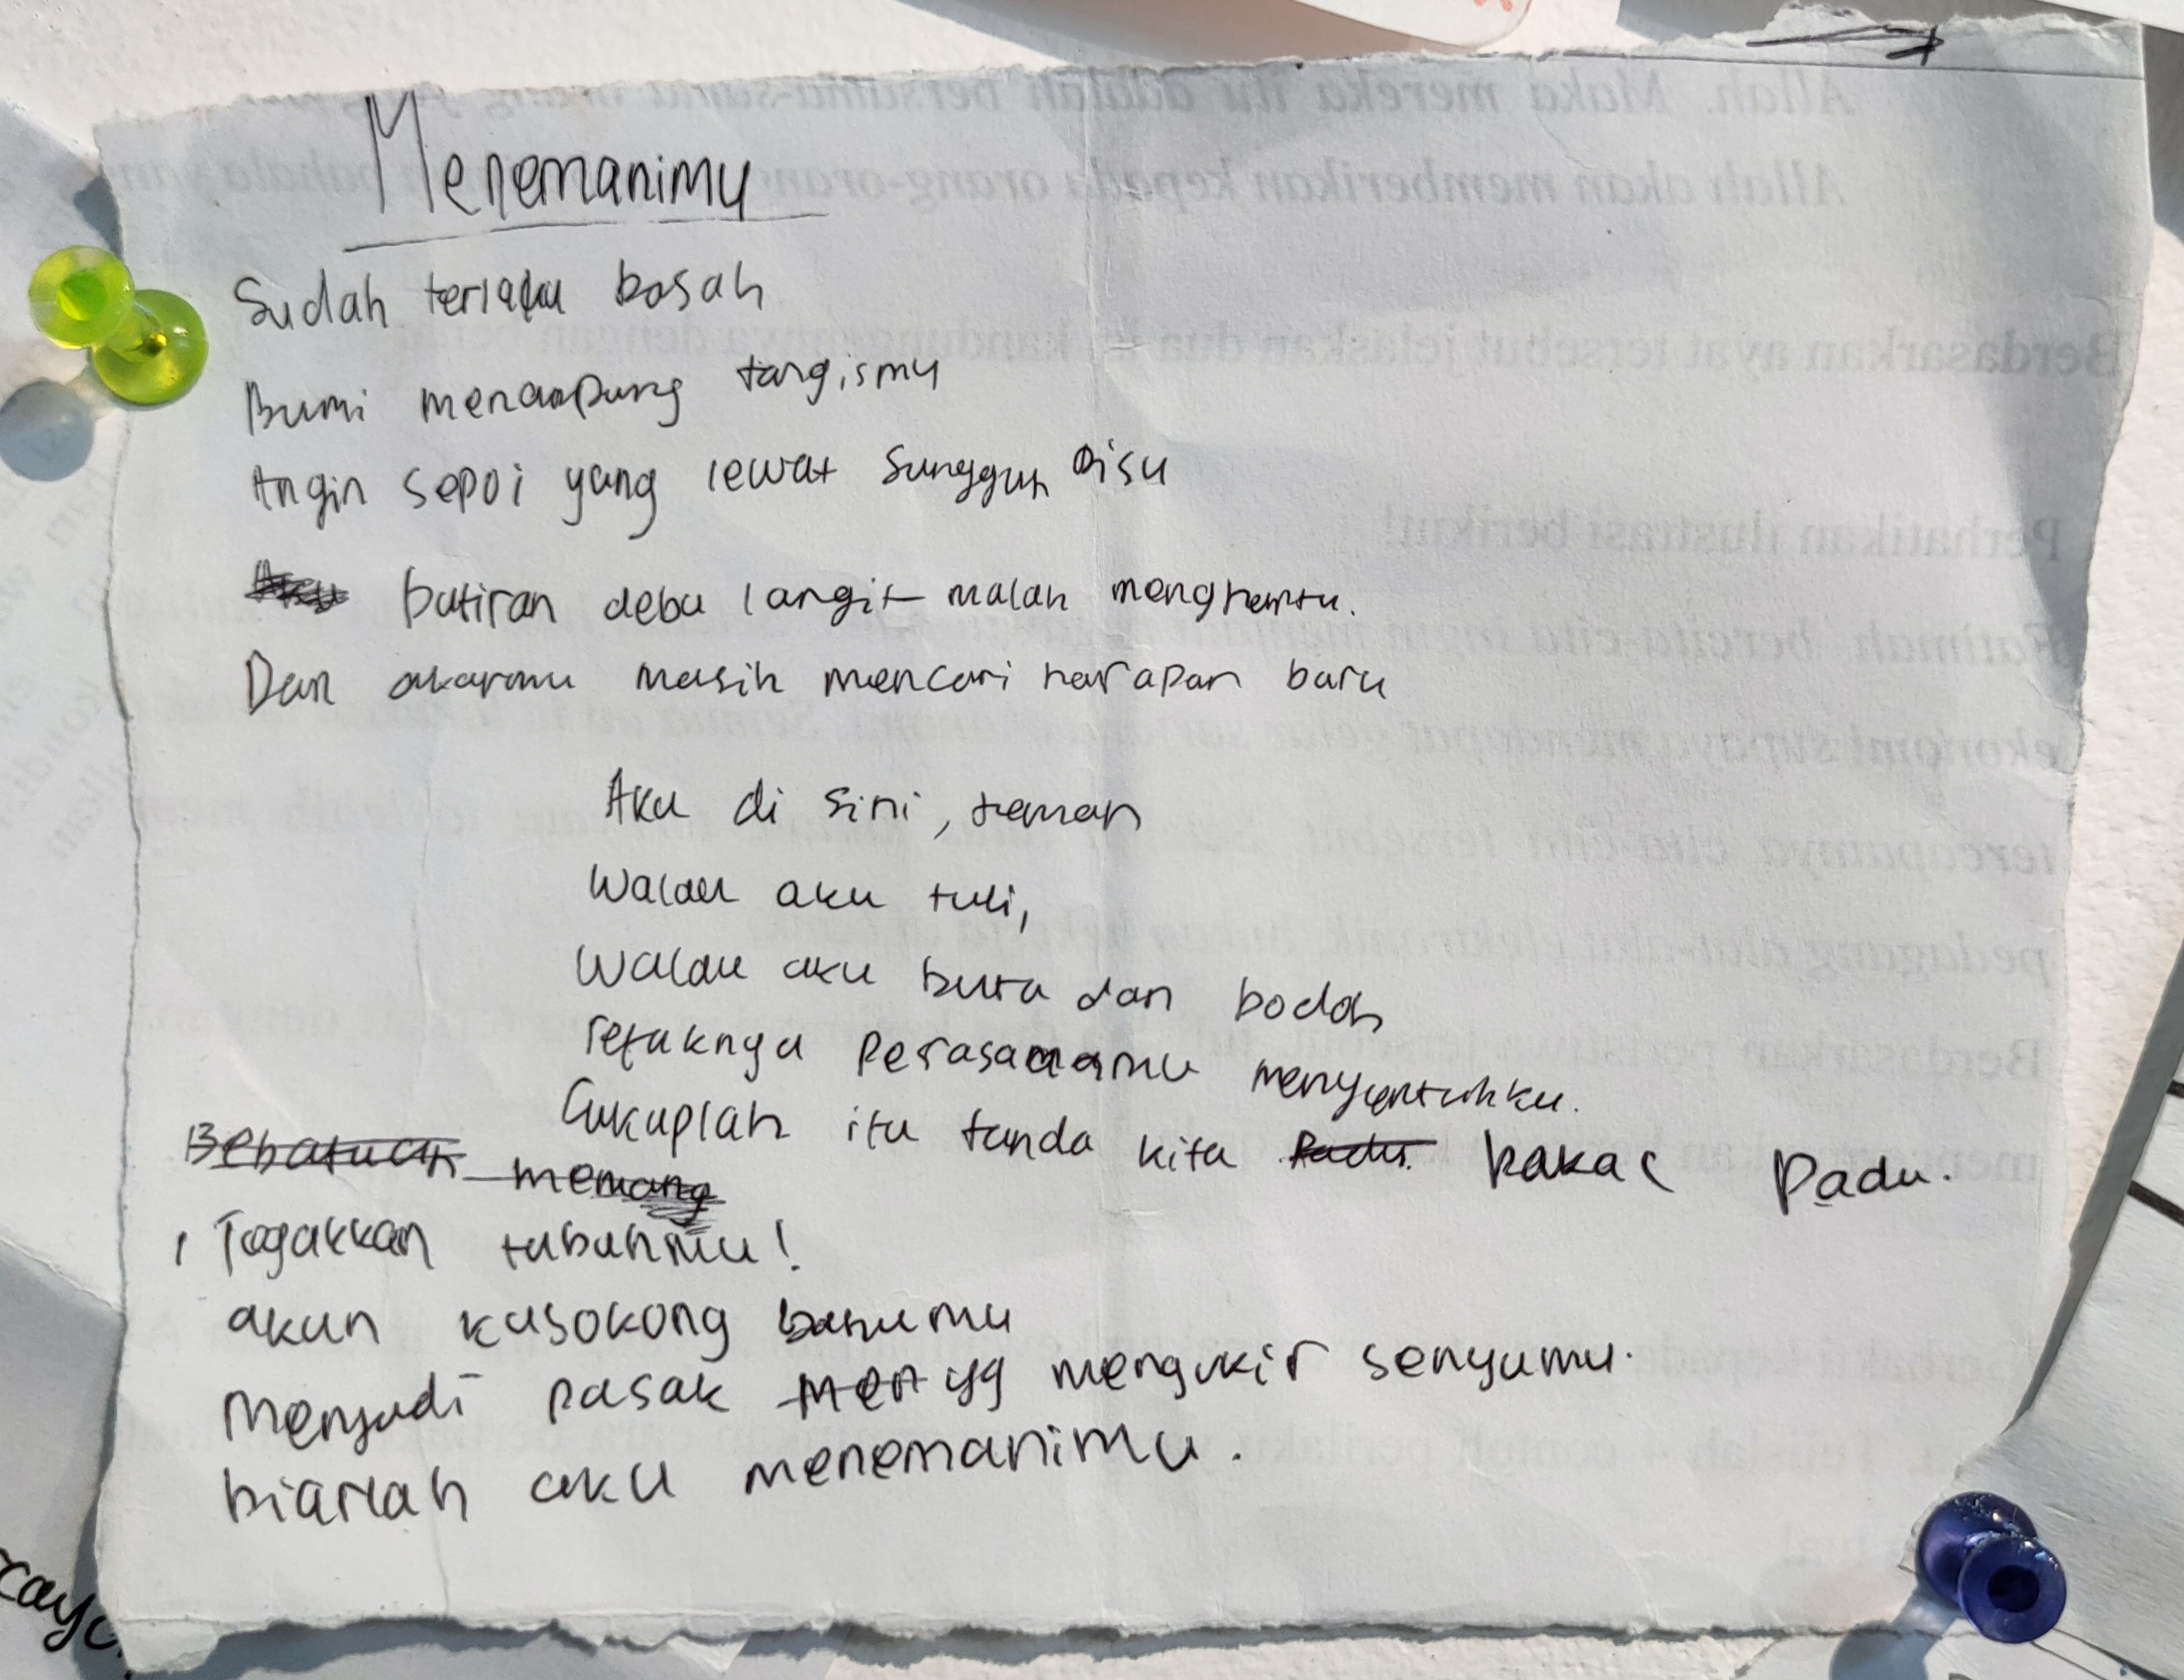 Menemanimu
Sudah terlalu basah
Bumi menampung tangismu
Angin sepoi yang lewat sungguh bisu
butiran debu langit malah menghantu.
Dan akarmu masih mencari harapan baru
Aku di sini, teman
Walau aku tuli,
Walau aku buta dan bodoh
retaknya perasaanmu menyentuhku.
Cukuplah itu tanda kita Padu. bakal Padu.
Bebatuan memang
Tegakkan tubuhmu!
akan kusokong bahumu
Menjadi pasak men yg mengukir senyumu.
biarlah aku menemanimu.
Allah. Maka mereka itu adalah bersama-sama orang
Allah akan memberikan kepada orang-orang pahala yang
Berdasarkan ayat tersebut jelaskan dua kandungannya dengan
Perhatikan ilustrasi berikut!
Fatimah bercita-cita ingin
ekonomi supaya mendapat gelar
tercapainya cita-cita tersebut
pedagang alat-alat elektronik
Berdasarkan